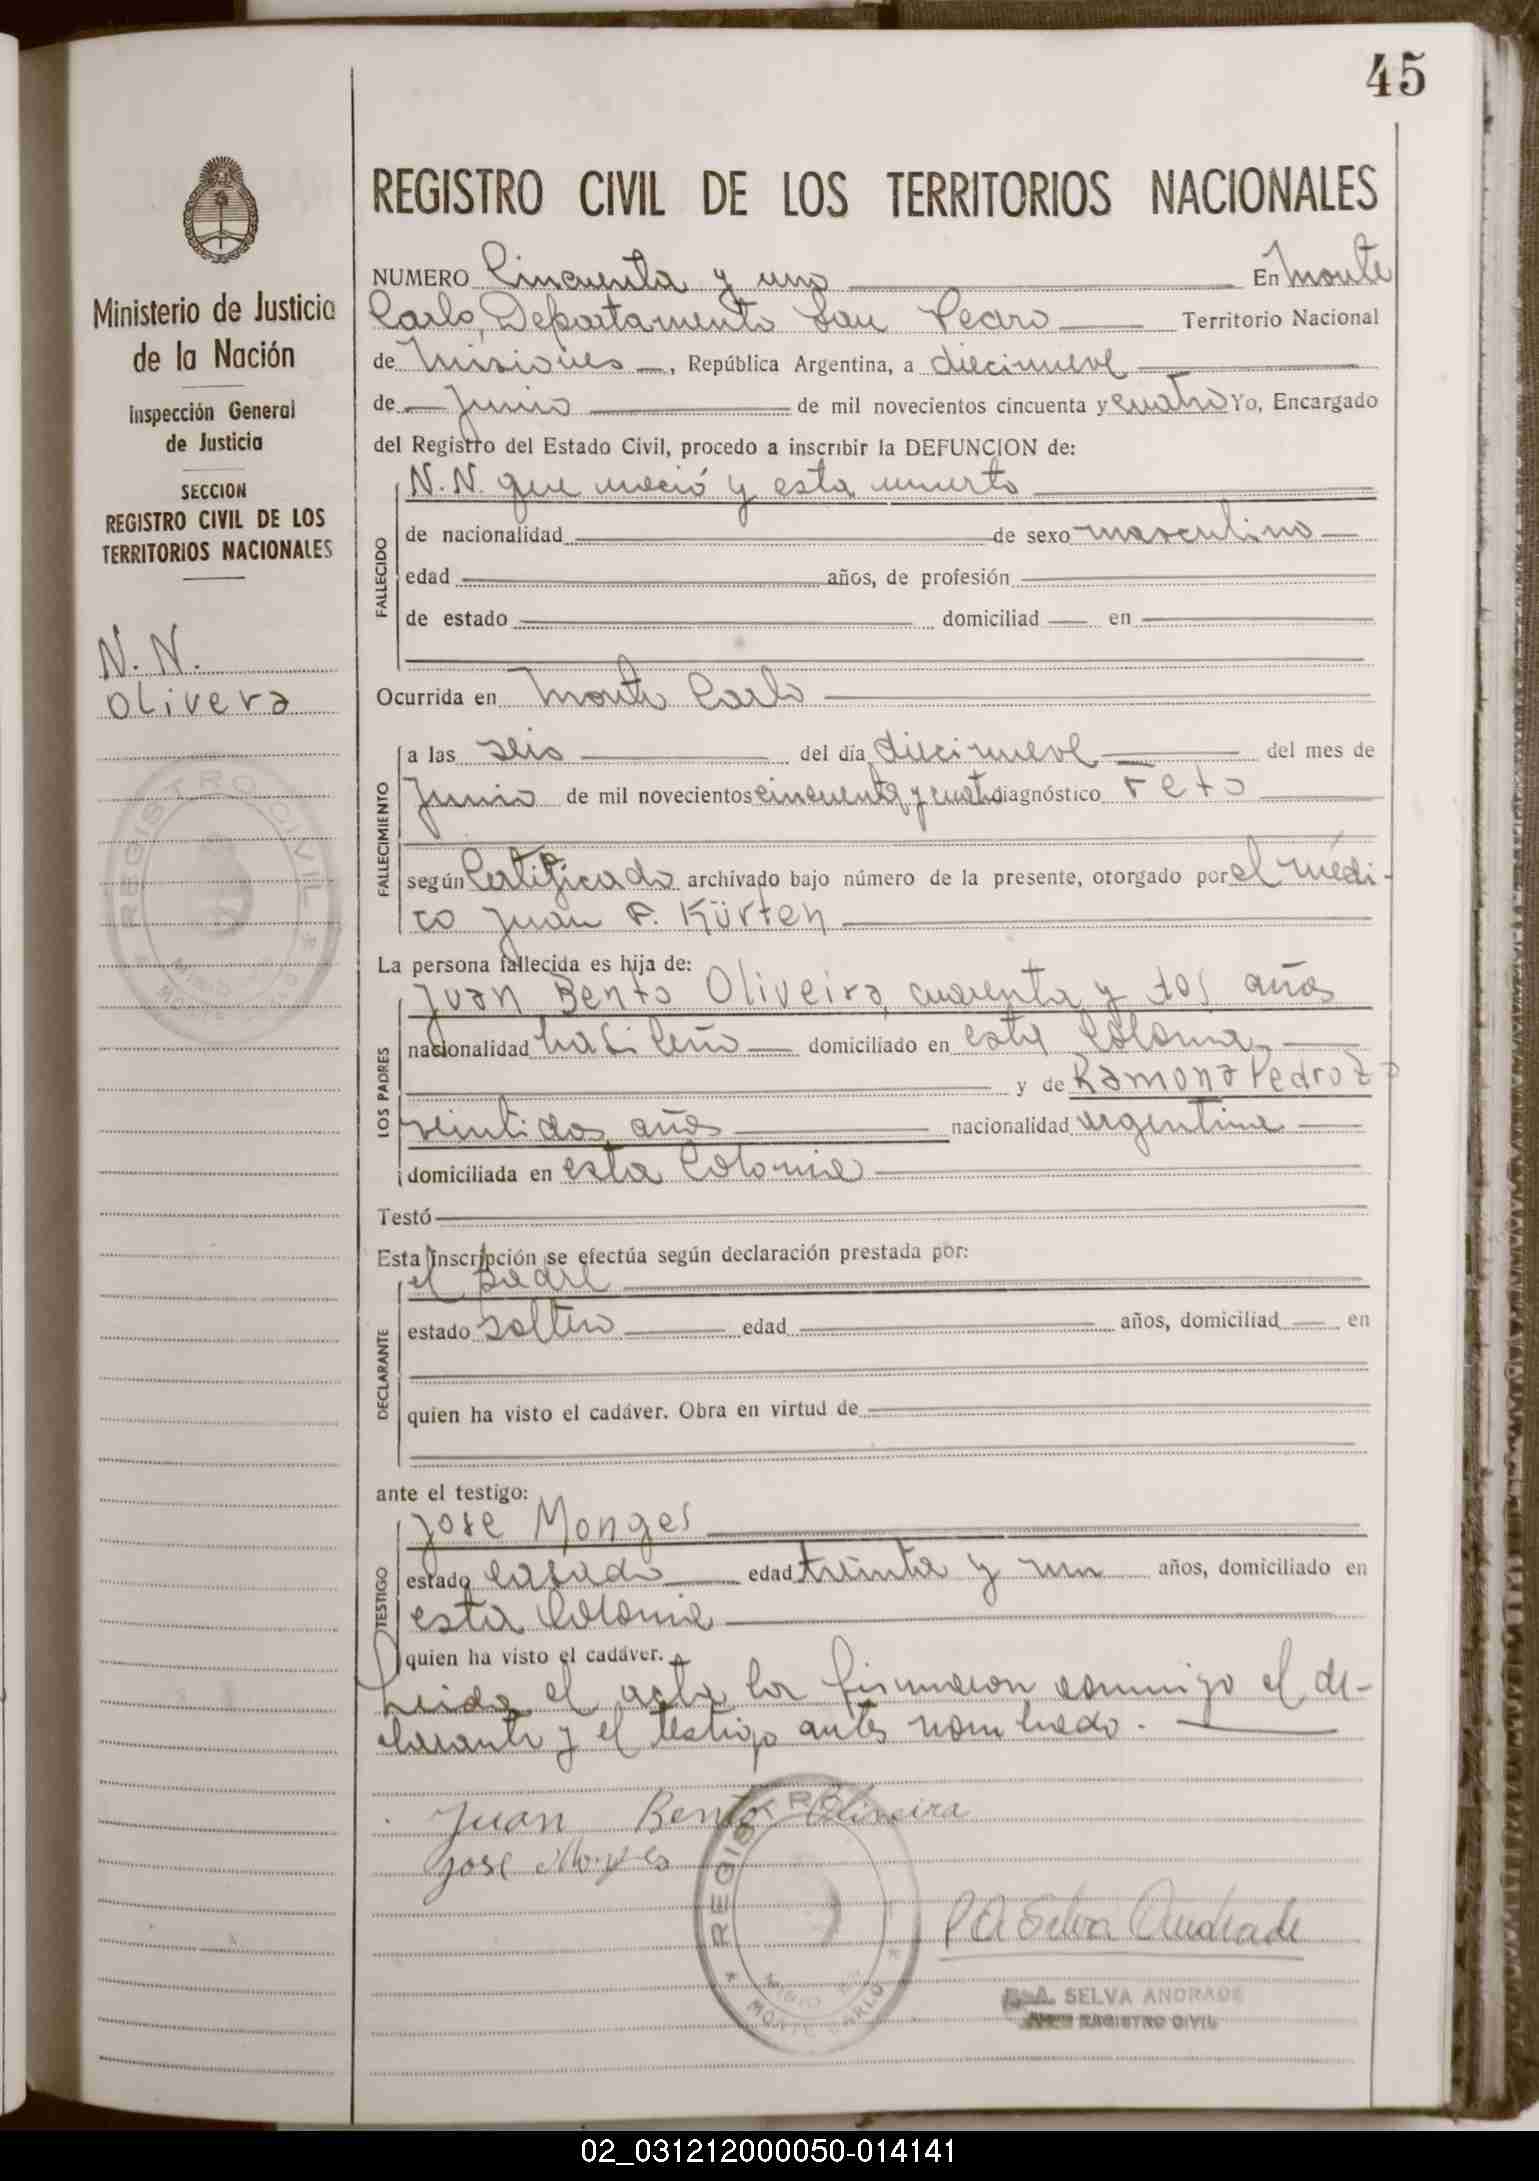 45
Ministerio de Justicia
de la Nación
Inspección General
de Justicia
SECCION
REGISTRO CIVIL DE LOS
TERRITORIOS NACIONALES
N. N.
Olivera
REGISTRO CIVIL
REGISTRO CIVIL DE LOS TERRITORIOS NACIONALES
NUMERO Cincuenta y uno En Monte
Carlo, Departamento San Pedro Territorio Nacional
de Misiones, República Argentina, a diecinueve
de Junio de mil novecientos cincuenta y cuatro Yo, Encargado
del Registro del Estado Civil, procedo a inscribir la DEFUNCION de:
N. N. que nació y esta muerto
FALLECIDO
de nacionalidad de sexo masculino
edad años, de profesión
de estado domiciliad en
Ocurrida en Monte Carlo
FALLECIMIENTO
a las seis del día diecinueve del mes de
Junio de mil novecientos cincuenta y cuatro diagnóstico Feto
según Certificado archivado bajo número de la presente, otorgado por el medi-
co Juan F. Kürten
La persona fallecida es hija de:
LOS PADRES
Juan Bento Oliveira, cuarenta y dos años
nacionalidad brasileño domiciliado en esta Colonia
y de Ramona Pedroza
veintidos años nacionalidad argentina
domiciliada en esta Colonia
Testó
Esta inscripción se efectúa según declaración prestada por:
DECLARANTE
el padre
estado soltero edad años, domiciliad en
quien ha visto el cadáver. Obra en virtud de
ante el testigo:
TESTIGO
Jose Monges
estado casado edad treinta y un años, domiciliado en
esta Colonia
quien ha visto el cadáver.
Leida el acta la firmaron conmigo el de-
clarante y el testigo antes nombrado.
Juan Bento Oliveira
Jose Monges
REGISTRO
MONTE CARLO
P A Selva Andrade
A. SELVA ANDRADE
REGISTRO CIVIL
02_031212000050-014141